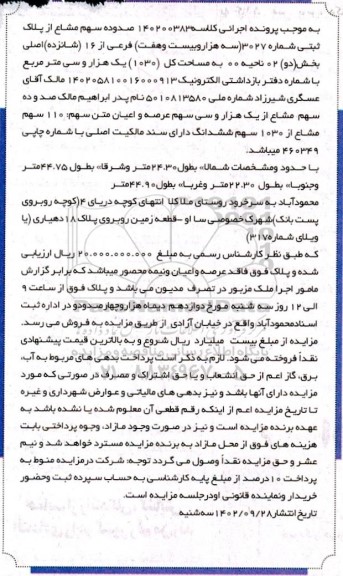 به موجب پرونده اجرائی کلاسه۱۴۰۲۰۰۳۸۳ صدوده سهم مشاع از پلاک
ثبتی شماره ۳۰۲۷(سه هزاروبیست وهفت) فرعی از ۱۶ (شانزده)اصلی
بخش(دو) ۰۲ ناحیه ۰۰ به مساحت کل (۱۰۳۰) یک هزار و سی متر مربع
با شماره دفتر بازداشتی الکترونیک۱۴۰۲۰۵۸۱۰۰۱۶۰۰۰۹۱۳ مالک آقای
عسگری شیرزاد شماره ملی ۵۰۱۰۸۱۳۵۸۰ نام پدر ابراهیم مالک صد و ده
سهم مشاع از یک هزار و سی سهم عرصه و اعیان متن سهم: ۱۱۰ سهم
مشاع از ۱۰۳۰ سهم ششدانگ دارای سند مالکیت اصلی با شماره چاپی
۴۶۰۳۴۹ میباشد.
با حدود ومشخصات شمالا» بطول۲۴.۳۰متر وشرقا» بطول ۴۴.۷۵متر
وجنوبا» بطول ۲۲.۳۰متر وغربا» بطول۴۴.۹۰متر
محمودآباد به سرخرود روستای ملاکلا انتهای کوچه دریای ۴(کوچه روبروی
پست بانک)شهرک خصوصی سا او –قطعه زمین روبروی پلاک۱۸دهیاری (یا
ویلای شماره۳۱۷)
که طبق نظر کارشناس رسمی به مبلغ ۲۰.۰۰۰.۰۰۰.۰۰۰ ریال ارزیابی
شده و پلاک فوق فاقد عرصه واعیان ونیمه محصور میباشد که برابر گزارش
مامور اجرا ملک مزبور در تصرف مدیون می باشد و پلاک فوق از ساعت ۹
الی ۱۲ روز سه شنبه مورخ دوازدهم دیماه هزاروچهارصدودو در اداره ثبت
اسنادمحمودآباد واقع در خیابان آزادی از طریق مزایده به فروش می رسد.
مزایده از مبلغ بیست میلیارد ریال شروع و به بالاترین قیمت پیشنهادی
نقداً فروخته می شود. لازم به ذکر است پرداخت بدهی های مربوط به آب،
برق، گاز اعم از حق انشعاب و یا حق اشتراک و مصرف در صورتی که مورد
مزایده دارای آنها باشد و نیز بدهی های مالیاتی و عوارض شهرداری و غیره
تا تاریخ مزایده اعم از اینکه رقم قطعی آن معلوم شده یا نشده باشد به
عهده برنده مزایده است و نیز در صورت وجود مازاد، وجوه پرداختی بابت
هزینه های فوق از محل مازاد به برنده مزایده مسترد خواهد شد و نیم
عشر و حق مزایده نقداً وصول می گردد توجه: شرکت درمزایده منوط به
پرداخت ۱۰درصد از مبلغ پایه کارشناسی به حساب سپرده ثبت وحضور
خریدار ونماینده قانونی اودرجلسه مزایده است.
تاریخ انتشار۱۴۰۲/۰۹/۲۸سه‌شنبه